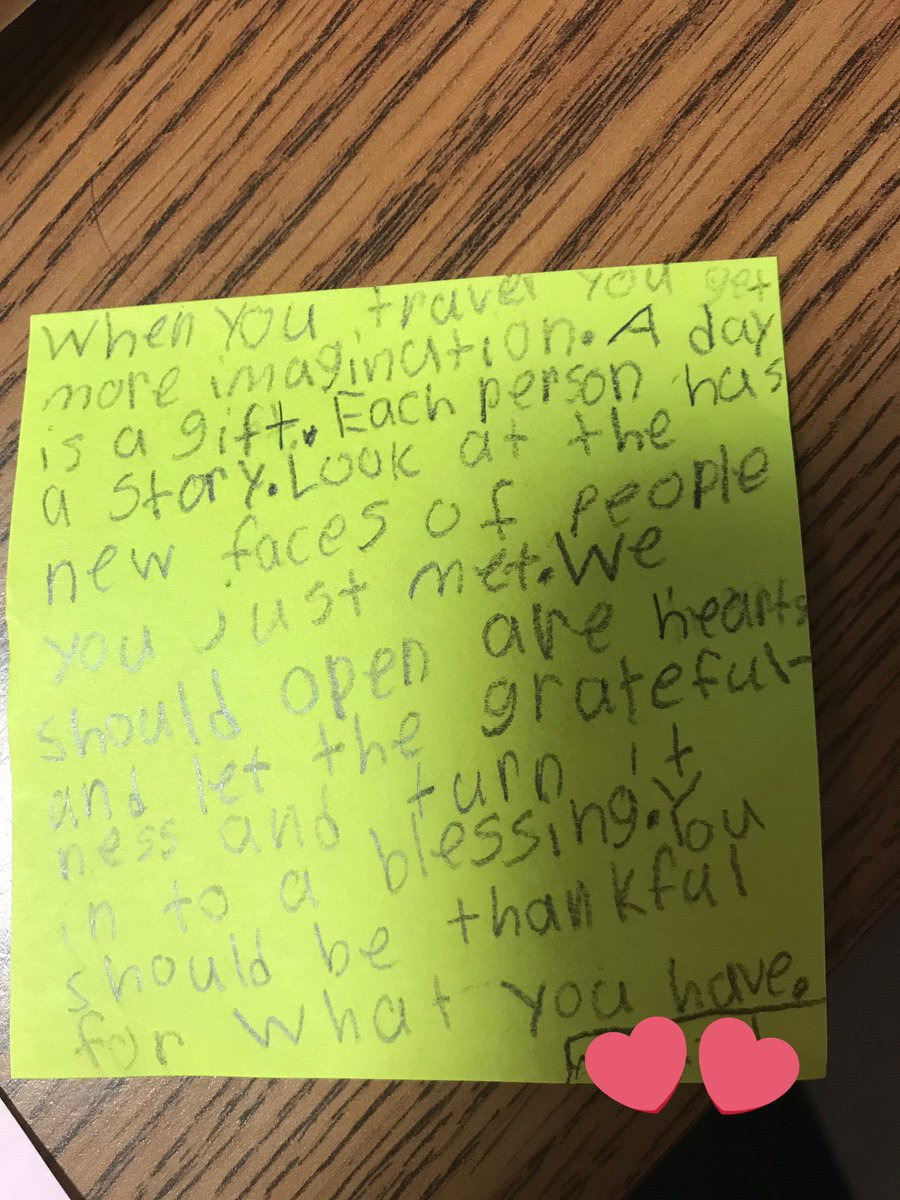 When you travel you get
more imagination. A day
is a gift. Each person has
a story. Look at the
new faces of people
you just met. We
should open are hearts
and let the grateful-
ness and turn it
in to a blessing. You
should be thankful
for what you have.